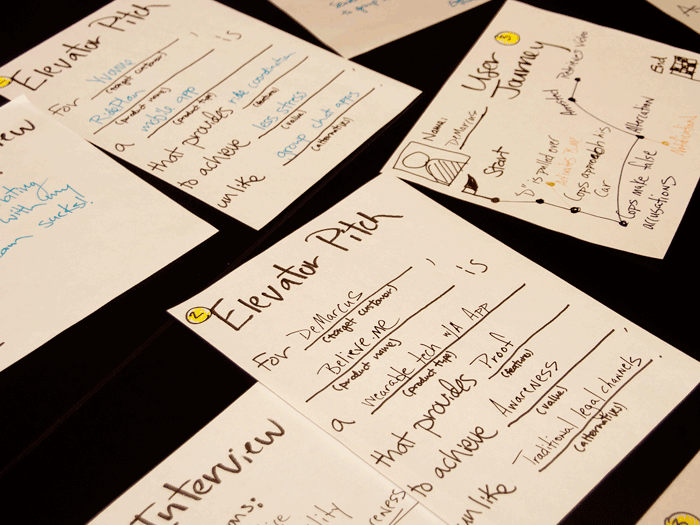 Elevator Pitch
For Yvonne,
(target customer)
RidePlan is
(product name)
a mobile app
(product type)
that provides ride coordination
(features)
to achieve less stress
(value)
unlike group chat apps
(alternatives)
with my
sucks!!
3
User
Journey
Name:
DeMarcus
Start
"D" is pulled over
Cops approaching
Car
Cops make false
accusations
Altercation
End
2
Elevator Pitch
For DeMarcus,
(target customer)
Believe.Me is
(product name)
a wearable tech w/A App
(product type)
that provides Proof
(features)
to achieve Awareness,
(value)
unlike Traditional legal channels
(alternatives)
Interview